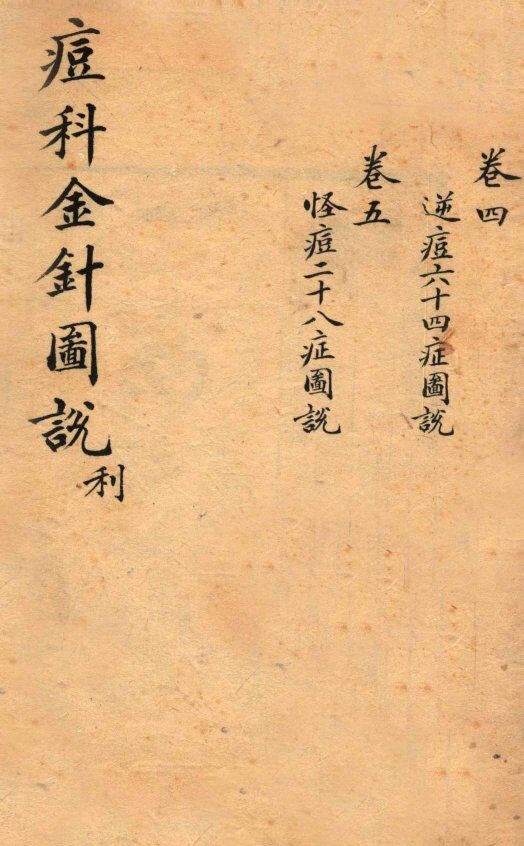 卷四
逆痘六十四症圖說
卷五
怪痘二十八症圖說
痘科金針圖說
利